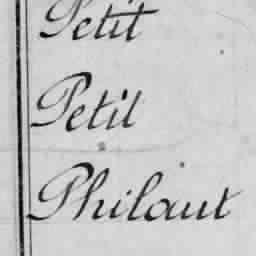 Petit
Petit
Philaut